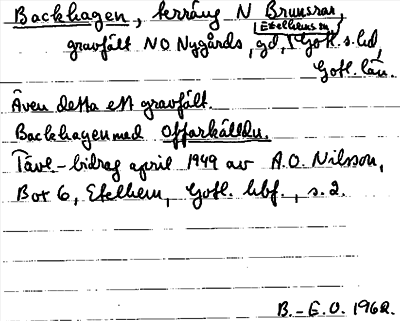 Backhagen, terräng N Brunsrar,
Etelhems sn
gravfält NO Nygårds, gd, Gotl. s. hd,
Gotl. län.
Även detta ett gravfält.
Backhagen med Offerkälldu.
Tävl.-bidrag april 1949 av A.O. Nilsson,
Box 6, Etelhem, Gotl. hbf., s. 2.
B.-E.O. 1962.